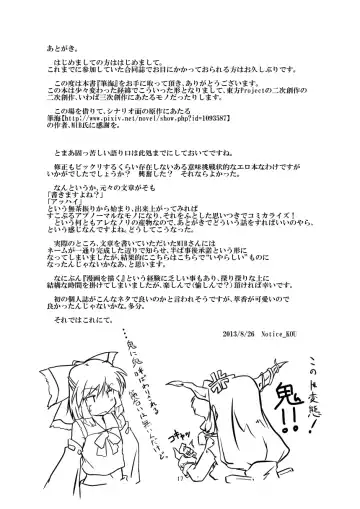 あとがき。
はじめましての方ははじめまして。
これまでに参加していた合同誌でお目にかかっておられる方はお久しぶりです。
この度は本書『筆海』をお手に取って頂き、ありがとうございます。
この本は少々変わった経緯でこういった形となりまして、東方Projectの二次創作の
二次創作、いわば三次創作にあたるモノだったりします。
この場を借りて、シナリオ面の原作にあたる
筆海【http://www.pixiv.net/novel/show.php?id=1093587】
の作者、MIB氏に感謝を。
とまあ固っ苦しい語り口は此処までにしておいてですね。
修正もビックリするくらい存在しないある意味挑戦状的なエロ本なわけですが
いかがでしたでしょうか？ 興奮した？ それならよかった。
なんというか、元々の文章がそも
「書きますよね？」
「アッハイ」
という無茶振りから始まり、出来上がってみれば
すこぶるアブノーマルなモノになり、それをふとした思いつきでコミカライズ！
という何ともアレなノリの産物なので、あとがきでどういう話をすればいいのやら、
という感じなんですよね。どうしてこうなった。
実際のところ、文章を書いていただいたMIBさんには
ネームが一通り完成した辺りで知らせ、半ば事後承諾という形に
なってしまいましたが、結果的にこちらはこちらで“いやらしい”ものに
なったんじゃないかなあ、と思います。
なにぶん『漫画を描く』という経験に乏しい事もあり、探り探りな上に
結構な時間を掛けてしまいましたが、楽しんで(愉しんで？)頂ければ幸いです。
初の個人誌がこんなネタで良いのかと言われそうですが、萃香が可愛いので
良かったんじゃないかな。多分。
それではこれにて。
2013/8/26 Notice_KOU
この ド変態！
鬼!!
…鬼に鬼
呼ばわりされる
筋合いも無いんだけど。
コキャッ